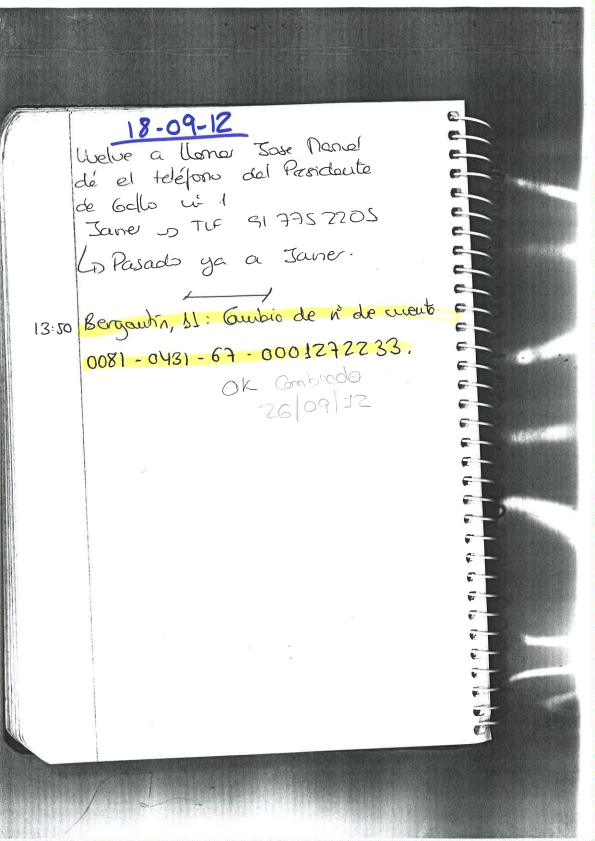 18-09-12
Vuelve a llamar Jose Manuel
dé el teléfono del Presidente
de Gallo nº 1
Javier → TLF 91 775 2205
↳ Pasado ya a Javier.
13:50 Bergantín, 11: Cambio de nº de cuenta
0081 - 0431 - 67 - 0001272233.
OK Cambiado
26/09/12